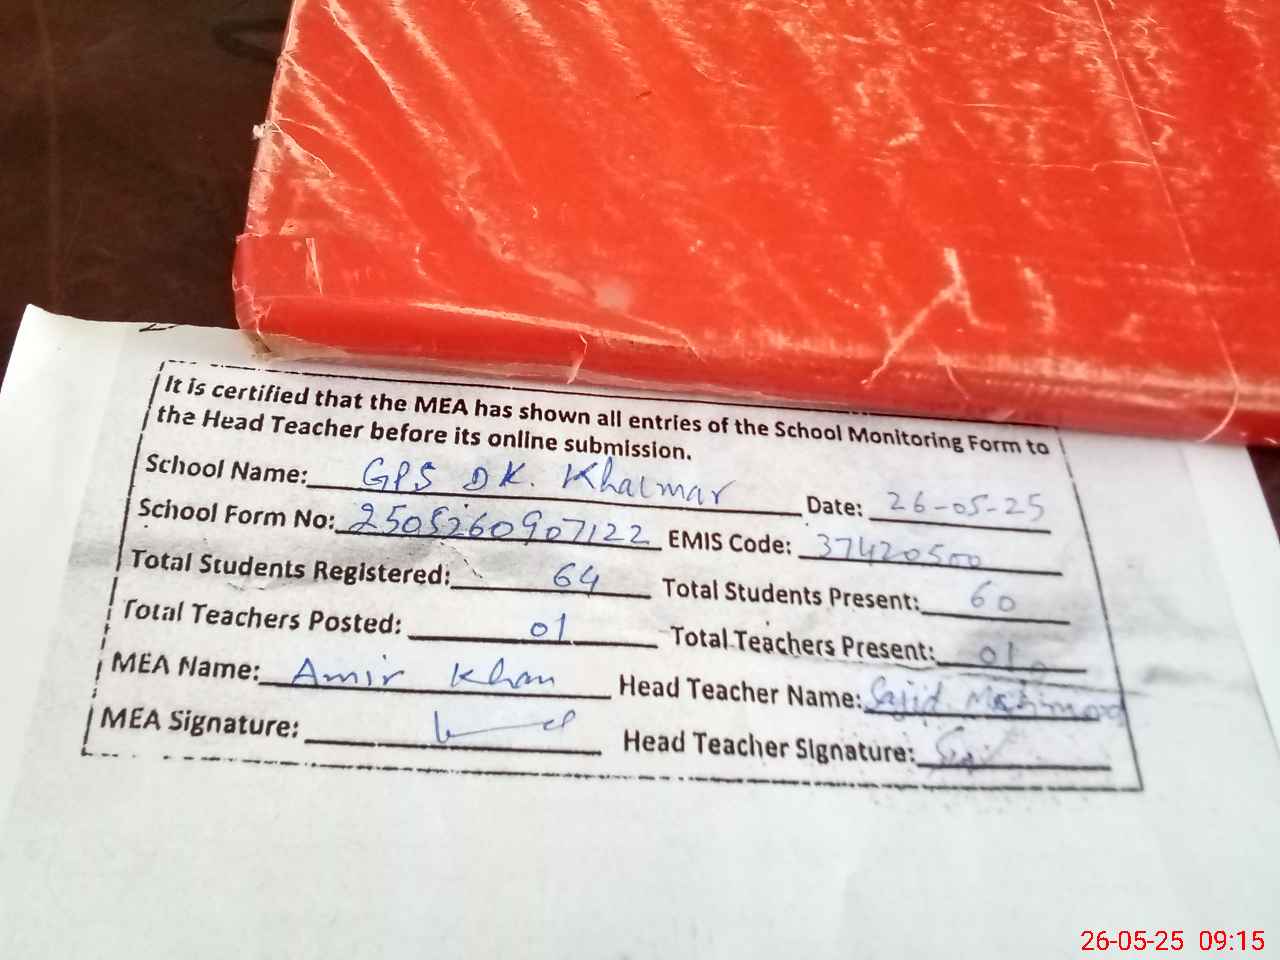 It is certified that the MEA has shown all entries of the School Monitoring Form to
the Head Teacher before its online submission.
School Name: GPS DK. Khalmar Date: 26-05-25
School Form No: 2505260907122 EMIS Code: 37420500
Total Students Registered: 64 Total Students Present: 60
Total Teachers Posted: 01 Total Teachers Present: 01
MEA Name: Amir Khan Head Teacher Name: Sajid Mehmood
MEA Signature: Head Teacher Signature:
26-05-25 09:15